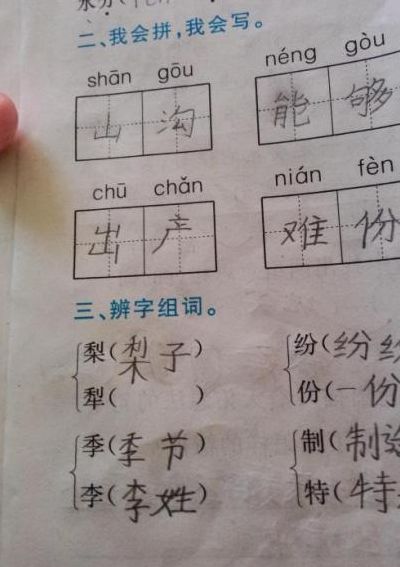 二、我会拼，我会写。
shān gōu néng gòu
山 沟 能 够
chū chǎn nián fèn
出 产 难 份
三、辨字组词。
梨(梨子) 纷(纷纷
犁( ) 份(一份
季(季节) 制(制造
李(李姓) 特(特